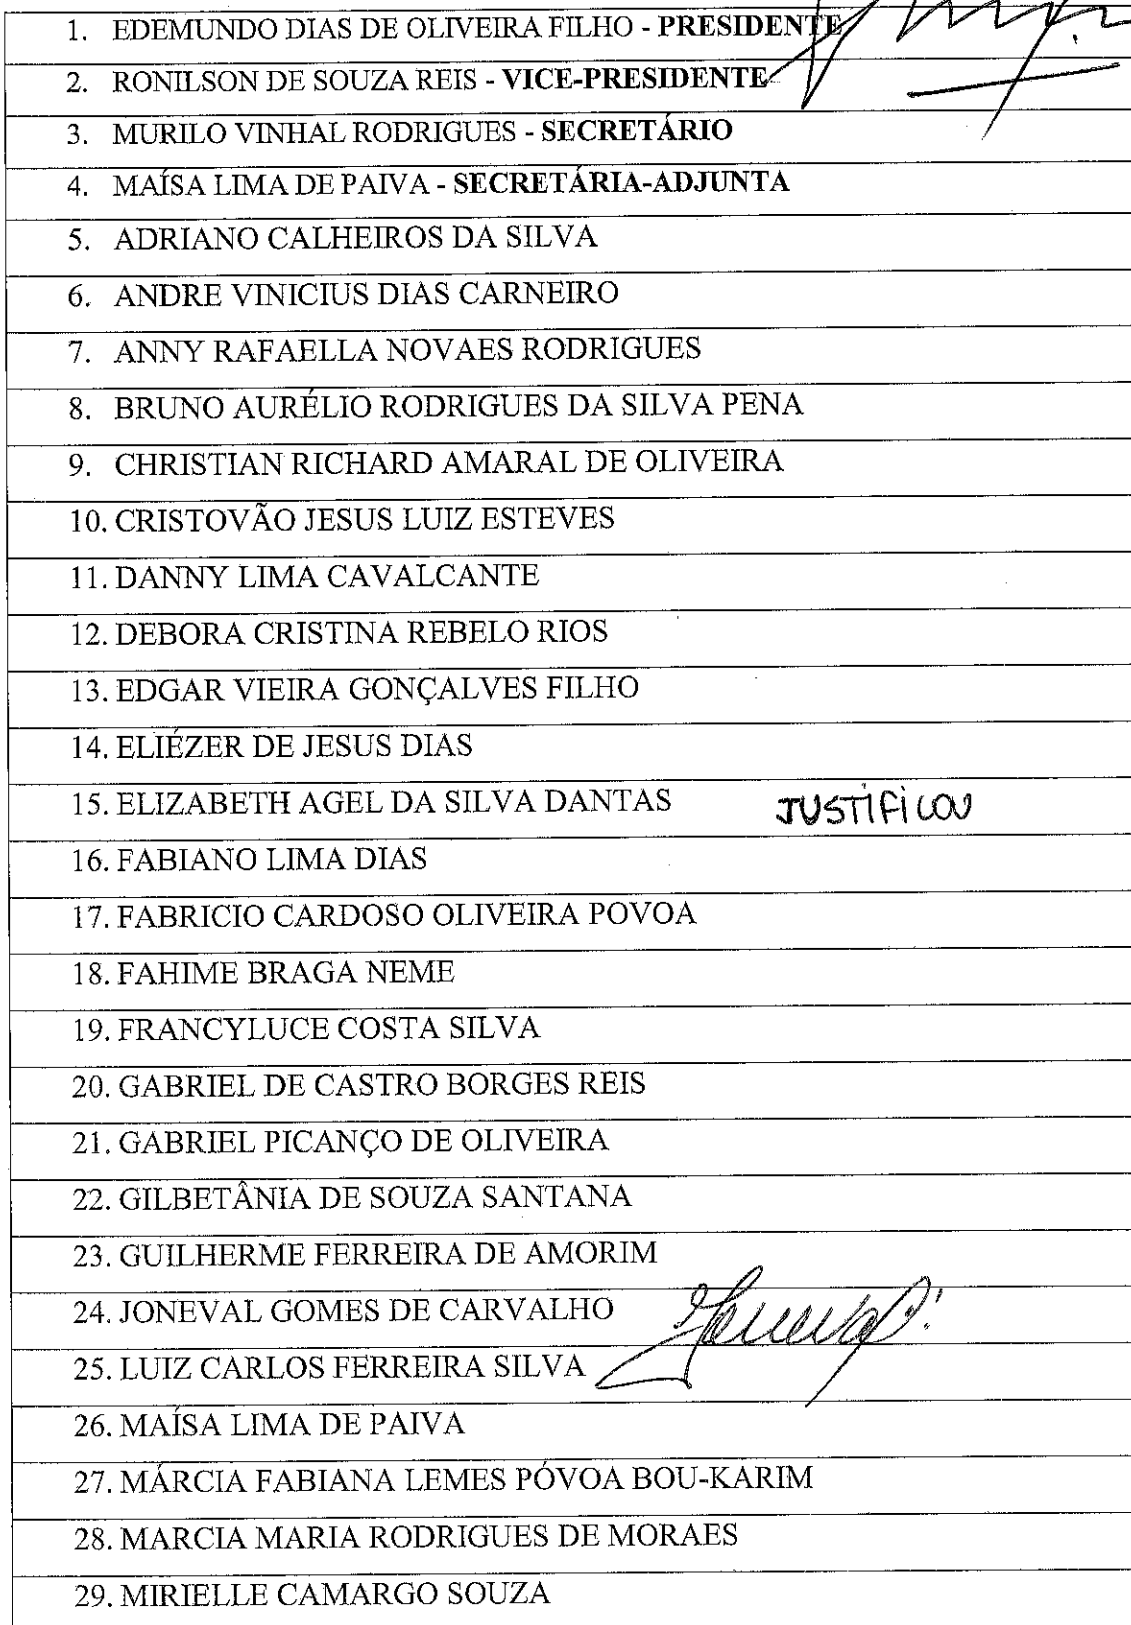 1. EDEMUNDO DIAS DE OLIVEIRA FILHO - PRESIDENTE
2. RONILSON DE SOUZA REIS - VICE-PRESIDENTE
3. MURILO VINHAL RODRIGUES - SECRETÁRIO
4. MAÍSA LIMA DE PAIVA - SECRETÁRIA-ADJUNTA
5. ADRIANO CALHEIROS DA SILVA
6. ANDRE VINICIUS DIAS CARNEIRO
7. ANNY RAFAELLA NOVAES RODRIGUES
8. BRUNO AURÉLIO RODRIGUES DA SILVA PENA
9. CHRISTIAN RICHARD AMARAL DE OLIVEIRA
10. CRISTOVÃO JESUS LUIZ ESTEVES
11. DANNY LIMA CAVALCANTE
12. DEBORA CRISTINA REBELO RIOS
13. EDGAR VIEIRA GONÇALVES FILHO
14. ELIÉZER DE JESUS DIAS
15. ELIZABETH AGEL DA SILVA DANTAS JUSTIFICOU
16. FABIANO LIMA DIAS
17. FABRICIO CARDOSO OLIVEIRA POVOA
18. FAHIME BRAGA NEME
19. FRANCYLUCE COSTA SILVA
20. GABRIEL DE CASTRO BORGES REIS
21. GABRIEL PICANÇO DE OLIVEIRA
22. GILBETÂNIA DE SOUZA SANTANA
23. GUILHERME FERREIRA DE AMORIM
24. JONEVAL GOMES DE CARVALHO
25. LUIZ CARLOS FERREIRA SILVA
26. MAÍSA LIMA DE PAIVA
27. MÁRCIA FABIANA LEMES PÓVOA BOU-KARIM
28. MARCIA MARIA RODRIGUES DE MORAES
29. MIRIELLE CAMARGO SOUZA